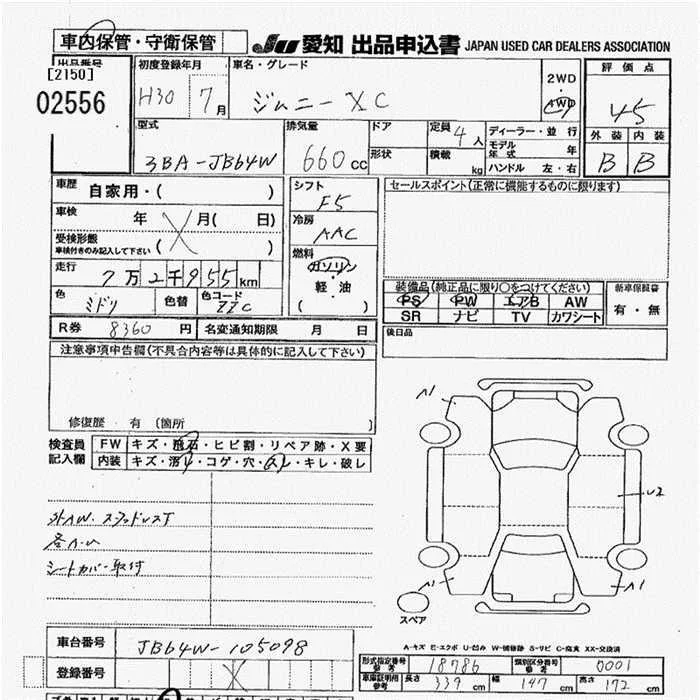 車内保管・守衛保管
JU 愛知 出品申込書 JAPAN USED CAR DEALERS ASSOCIATION
出品番号 初度登録年月 車名・グレード 2WD 評価点
[2150]
02556 H30 7月 ジムニー XC 4WD 4.5
型式 排気量 ドア 定員 4人 ディーラー・並行 外装 内装
モデル年式 年
3BA-JB64W 660cc 形状 積載 kg ハンドル 左・右 B B
車歴 自家用・( ) シフト F5 セールスポイント(正常に機能するものに限ります)
車検 年 X 月( 日) 冷房 AAC
受検形態
車検付きのみ記入して下さい ( ) 燃料
走行 7万2千955km ガソリン
軽・油
( )
装備品(純正品に限り○をつけてください) 新車保証書
色 ミドリ 色替 色コード ZZC PS PW エアB AW 有・無
SR ナビ TV カワシート
R券 8360円 名変通知期限 月 日 後日品
注意事項申告欄(不具合内容等は具体的に記入して下さい)
修復歴 有 (箇所 )
検査員記入欄 FW キズ・飛石・ヒビ割・リペア跡・X要
内装 キズ・汚れ・コゲ・穴・スレ・キレ・破レ
A1
U2
外AW・スタッドレスT
各A・U
シートカバー取付
A1 A1
スペア
A-キズ E-エクボ U-凹み W-補修跡 S-サビ C-腐食 XX-交換済
車台番号 JB64W-105098
型式指定番号参考 18786 類別区分番号参考 0001
登録番号 X
車庫証明用参考 長さ 339cm 幅 147cm 高さ 172cm